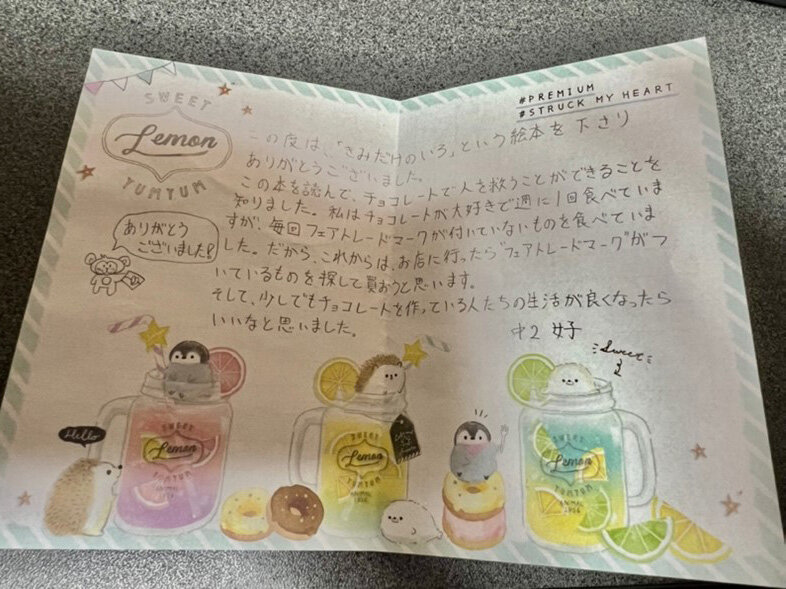 #PREMIUM
#STRUCK MY HEART
SWEET
Lemon
YUMYUM
この度は、「きみだけのいろ」という絵本を下さり
ありがとうございました。
この本を読んで、チョコレートで人を救うことができることを
知りました。私はチョコレートが大好きで週に1回食べていま
すが、毎回フェアトレードマークが付いていないものを食べていま
した。だから、これからは、お店に行ったら"フェアトレードマーク"がつ
いているものを探して買おうと思います。
そして、少しでもチョコレートを作っている人たちの生活が良くなったら
いいなと思いました。
中2 女子
ありがとう
ございました!
Sweet
Hello
SWEET
Lemon
YUMYUM
ANIMAL
SWEET
Lemon
YUMYUM
ANIMAL
SWEET
Lemon
YUMYUM
ANIMAL